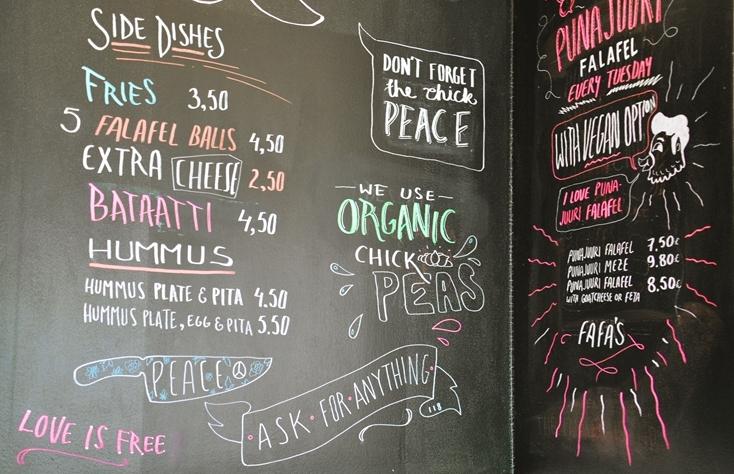 SIDE DISHES
FRIES 3,50
5 FALAFEL BALLS 4,50
EXTRA CHEESE 2,50
BATAATTI 4,50
HUMMUS
HUMMUS PLATE & PITA 4.50
HUMMUS PLATE, EGG & PITA 5.50
PEACE
LOVE IS FREE
DON'T FORGET
the chick
PEACE
WE USE
ORGANIC
CHICK
PEAS
ASK · FOR · ANYTHING
PUNAJUURI
FALAFEL
EVERY TUESDAY
WITH VEGAN OPTION
I LOVE PUNA-
JUURI FALAFEL
PUNAJUURI FALAFEL 7.50€
PUNAJUURI MEZE 9.80€
PUNAJUURI FALAFEL 8.50€
WITH GOATCHEESE OR FETA
FAFA'S